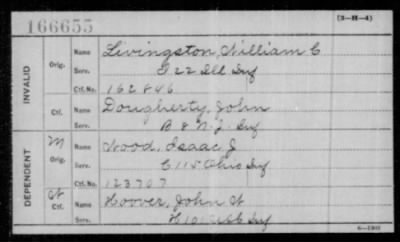 166655
(3-H-4)
INVALID
Orig. Name Livingston, William C
Serv. I 22 Ill Inf
Ctf. No. 162846
Ctf. Name Dougherty, John
Serv. B 8 N.J. Inf
DEPENDENT
M Orig. Name Wood, Isaac J
Serv. C 115 Ohio Inf
Ctf. No. 123707
Ctf. Name Hoover, John W
Serv. H 101 Inf
6-1901